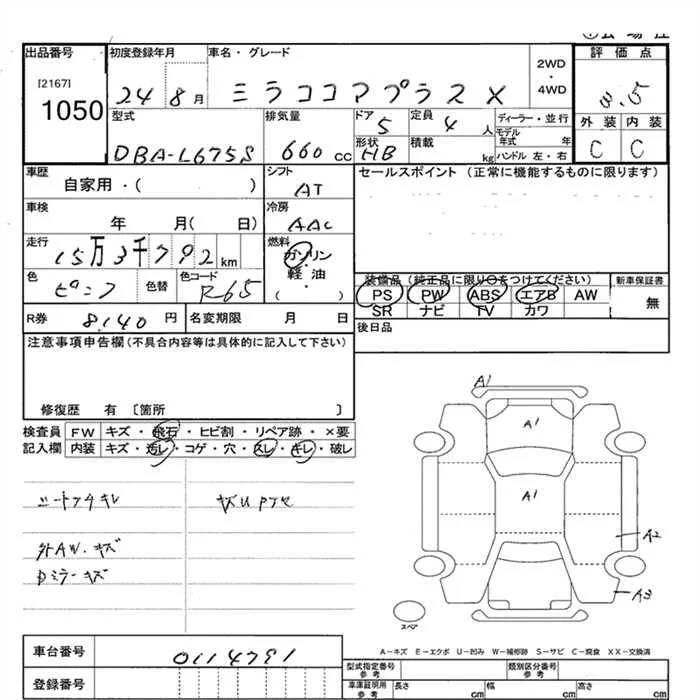 出品番号
[2167]
1050
初度登録年月
24 8月
車名・グレード
ミラココアプラス X
2WD
・
4WD
評価点
3.5
外装 内装
C C
型式
DBA-L675S
排気量
660 cc
ドア
5
定員
4 人
形状
HB
積載
kg
ディーラー・並行
モデル年式 年
ハンドル 左・右
車歴
自家用・( )
シフト
AT
車検
年 月( 日)
冷房
AAC
走行
15万3千792 km
燃料
ガソリン
軽・油
・
( )
色
ピンク
色替
色コード
R65
R券
8,140 円
名変期限 月 日
セールスポイント (正常に機能するものに限ります)
装備品 (純正品に限り〇をつけてください)
PS PW ABS エアB AW
SR ナビ TV カワ
新車保証書
無
後日品
注意事項申告欄(不具合内容等は具体的に記入して下さい)
修復歴 有 〔箇所 〕
検査員 FW キズ・飛石・ヒビ割・リペア跡・×要
記入欄 内装 キズ・汚レ・コゲ・穴・スレ・キレ・破レ
外AW.キズ
Dミラーキズ
A1
A1
A1
A2
A3
スペア
A-キズ E-エクボ U-凹み W-補修跡 S-サビ C-腐食 XX-交換済
車台番号
0114791
登録番号
型式指定番号
参考
類別区分番号
参考
車庫証明用
参考
長さ cm 幅 cm 高さ cm